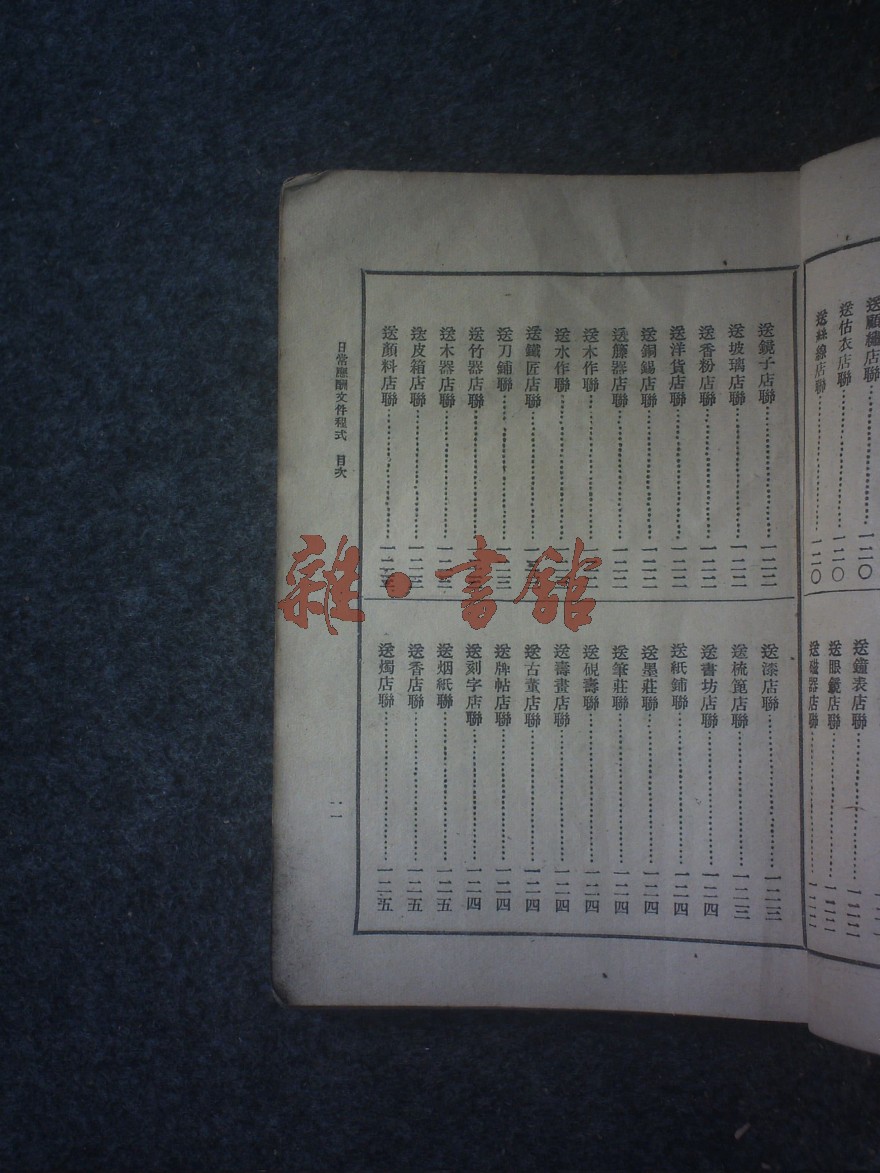 送顧繡店聯 一二〇
送估衣店聯 一二〇
送絲線店聯 一二〇
送鐘表店聯
送眼鏡店聯
送磁器店聯
送鏡子店聯 一二二
送玻璃店聯 一二二
送香粉店聯 一二二
送洋貨店聯 一二二
送銅錫店聯 一二二
送籐器店聯 一二二
送木作聯
送水作聯
送鐵匠店聯
送刀鋪聯
送竹器店聯
送木器店聯
送皮箱店聯
送顏料店聯
送漆店聯 一二三
送梳篦店聯 一二三
送書坊店聯 一二四
送紙鋪聯 一二四
送墨莊聯 一二四
送筆莊聯 一二四
送硯壽聯 一二四
送壽畫店聯 一二四
送古董店聯 一二四
送牌帖店聯 一二四
送刻字店聯 一二四
送烟紙聯 一二五
送香店聯 一二五
送燭店聯 一二五
日常應酬文件程式 目次
一一
雜·書館